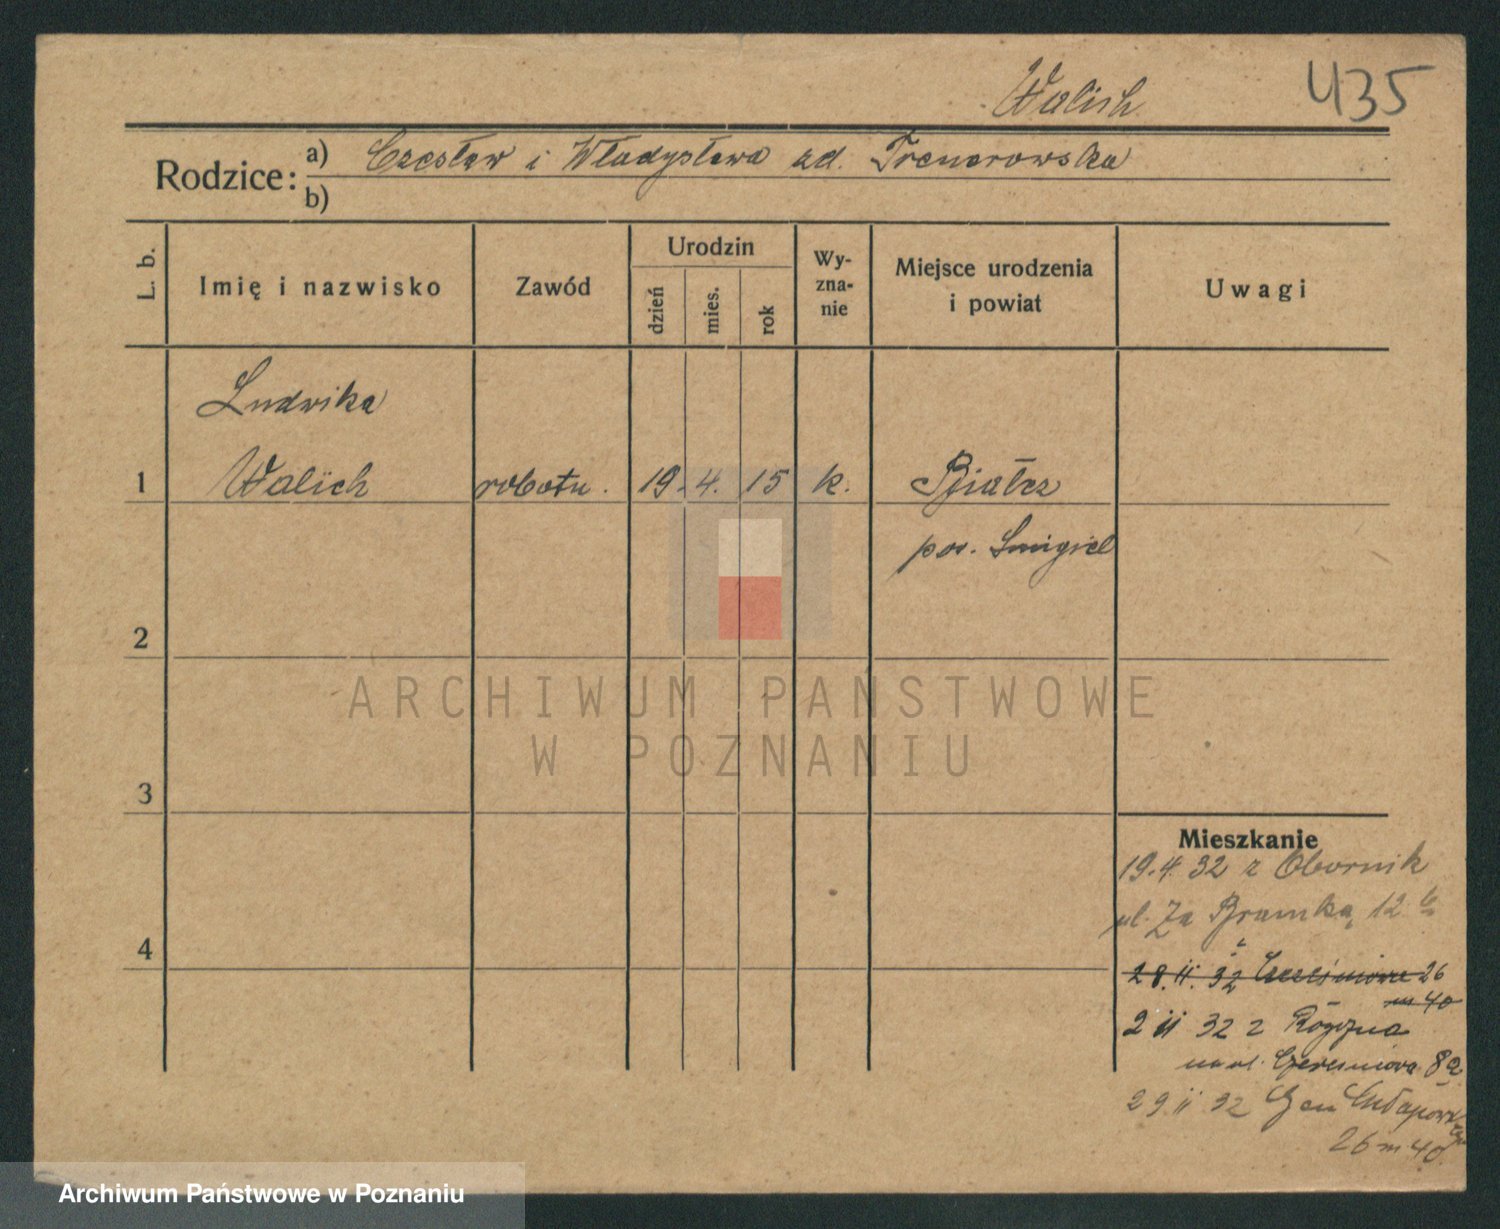 Walich 435
Rodzice: a) Czesław i Władysława zd. Trenerowska
b)
L. b. Imię i nazwisko Zawód Urodzin dzień mies. rok Wy-zna-nie Miejsce urodzenia i powiat Uwagi
Ludwika
1 Walich robotn. 19. 4. 15 k. Białcz
pow. Śmigiel
2
ARCHIWUM PAŃSTWOWE
W POZNANIU
3
Mieszkanie
19.4.32 z Obornik
ul. Za Bramką 12
4
28.11.32 26
m 40
2 11 32 z Różna
na ul. Czereśniowa 8a
29 11 32 Gen
26 m 40
Archiwum Państwowe w Poznaniu